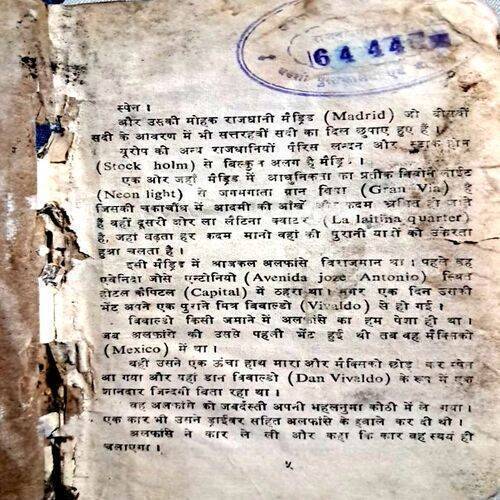 6444
स्पेन ।
और उसकी मोहक राजधानी मैड्रिड (Madrid) जो बीसवीं
सदी के आवरण में भी सत्तरहवीं सदी का दिल छुपाए हुए है ।
यूरोप की अन्य राजधानियों पैरिस लन्दन और स्टाक होम
(Stock holm) से बिल्कुल अलग है मैड्रिड ।
एक ओर जहाँ मैड्रिड में आधुनिकता का प्रतीक नियोन लाईट
(Neon light) से जगमगाता ग्रान विया (Gran Via) है
जिसकी चकाचौंध में आदमी की आंखें और कदम भ्रमित हो जाते
हैं वहीं दूसरी ओर ला लैटिना क्वाटर (La laitina quarter)
है, जहां बढ़ता हर कदम मानो वहां की पुरानी यादों को उकेरता
हुआ चलता है ।
इसी मैड्रिड में आजकल अलफांसे विराजमान था । पहले वह
एवेनिडा जोसे एन्टोनियो (Avenida joze Antonio) स्थित
होटल कैपिटल (Capital) में ठहरा था । मगर एक दिन उसकी
भेंट अपने एक पुराने मित्र विवाल्डो (Vivaldo) से हो गई ।
विवाल्डो किसी जमाने में अलफांसे का हम पेशा ही था ।
जब अलफांसे की उससे पहली भेंट हुई थी तब वह मैक्सिको
(Mexico) में था ।
यहीं उसने एक ऊंचा हाथ मारा और मैक्सिको छोड़ कर स्पेन
आ गया और यहां डान विवाल्डो (Dan Vivaldo) के रूप में एक
शानदार जिन्दगी बिता रहा था ।
वह अलफांसे को जबर्दस्ती अपनी महलनुमा कोठी में ले गया ।
एक कार भी उसने ड्राईवर सहित अलफांसे के हवाले कर दी थी ।
अलफांसे ने कार ले ली और कहा कि कार वह स्वयं ही
चलाएगा ।
५